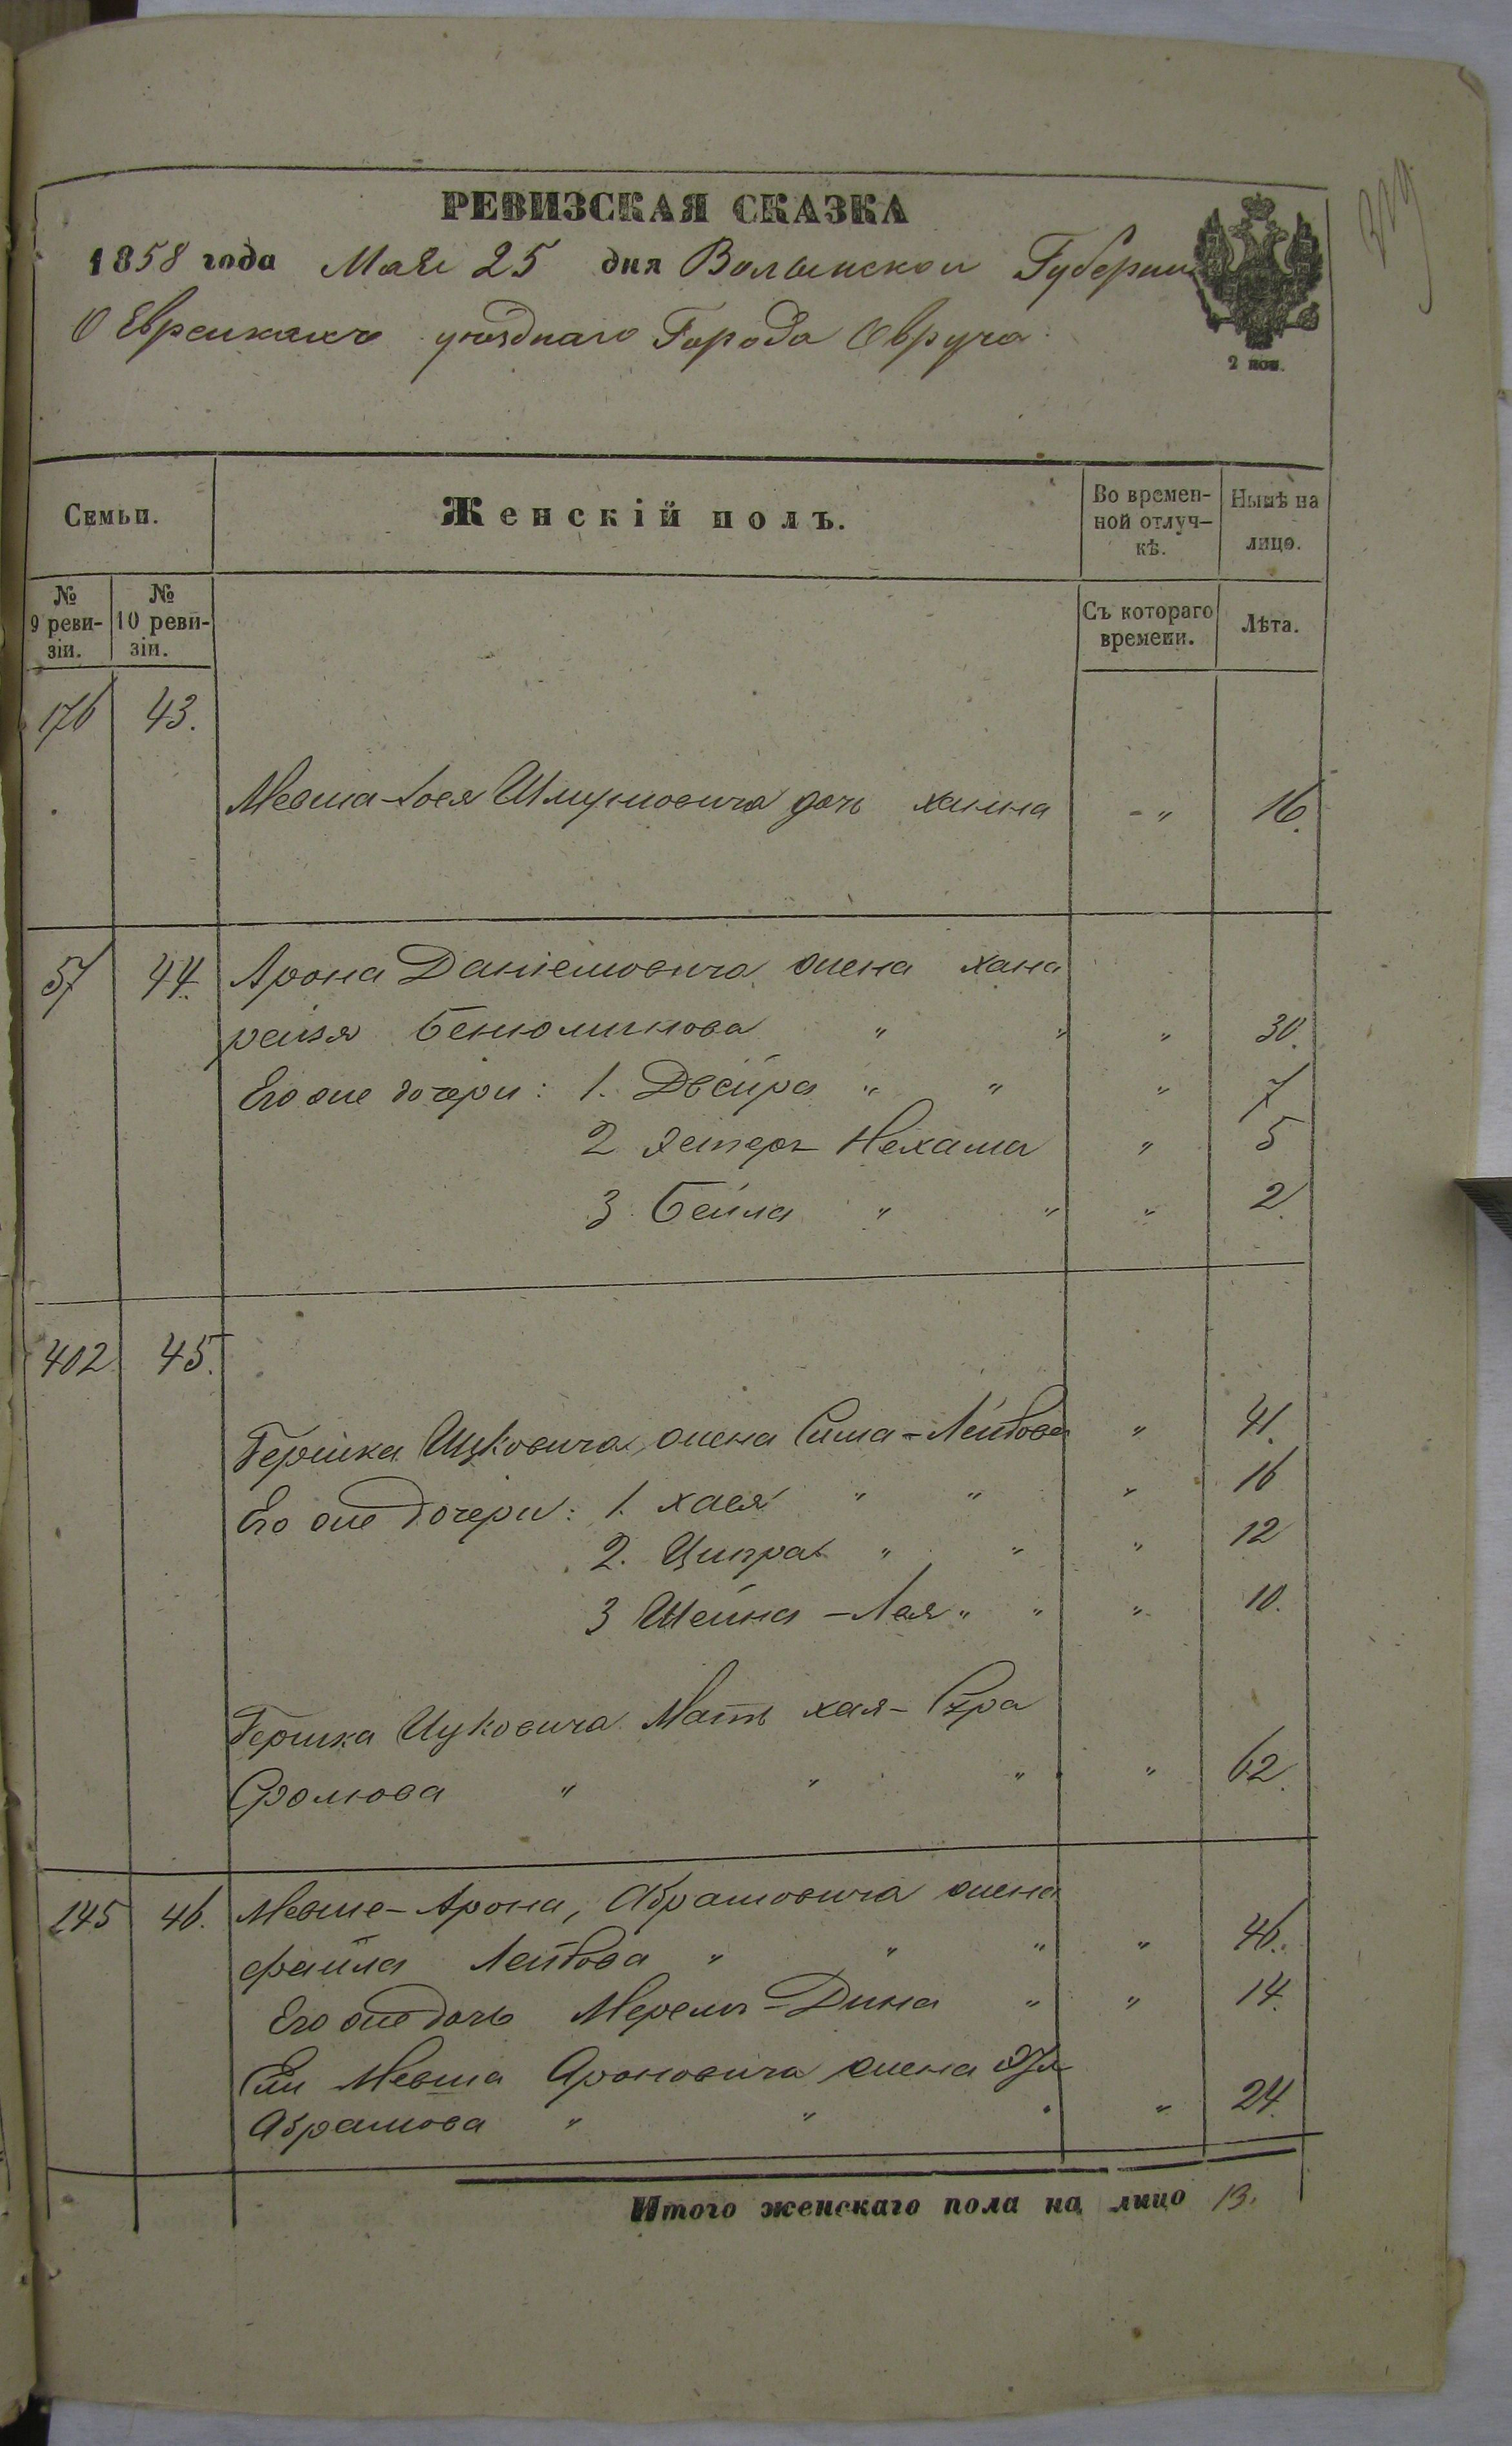 РЕВИЗСКАЯ СКАЗКА
1858 года Мая 25 дня Волынской Губернии
О Еврейкахъ уѣзднаго Города Овруча
2 пол.
Семьи. Женскій полъ. Во времен- Нынѣ на
ной отлуч- лицо.
кѣ.
№ № Съ котораго Лѣта.
9 реви- 10 реви- времени.
зіи. зіи.
176 43.
Мовша Шмулиовича дочь ханна - " 16.
57 44. Арона Даніеліовича жена хана
рейзя Бенюминова " " " 30.
Его же дочери: 1. Двейра " " " 7
2 Эстеръ Нехама " 5
3 Бейла " " " 2.
402 45.
Гершка Ицковича жена Сима-Лейбова " 41.
Его же дочери: 1. хася " " " 16
2. Ципра " " " 12
3 Шейна-Лея " " " 10.
Гершка Ицковича Мать хая-Сура
Сроліова " " " " 62.
145 46. Мовше-Арона, Абрамовича жена
файла Лейбова " " " " 46.
Его же дочь Мерель-Дина " " 14.
Мовша Ароновича жена
Абрамова " " " " 24.
Итого женскаго пола на лицо 13.